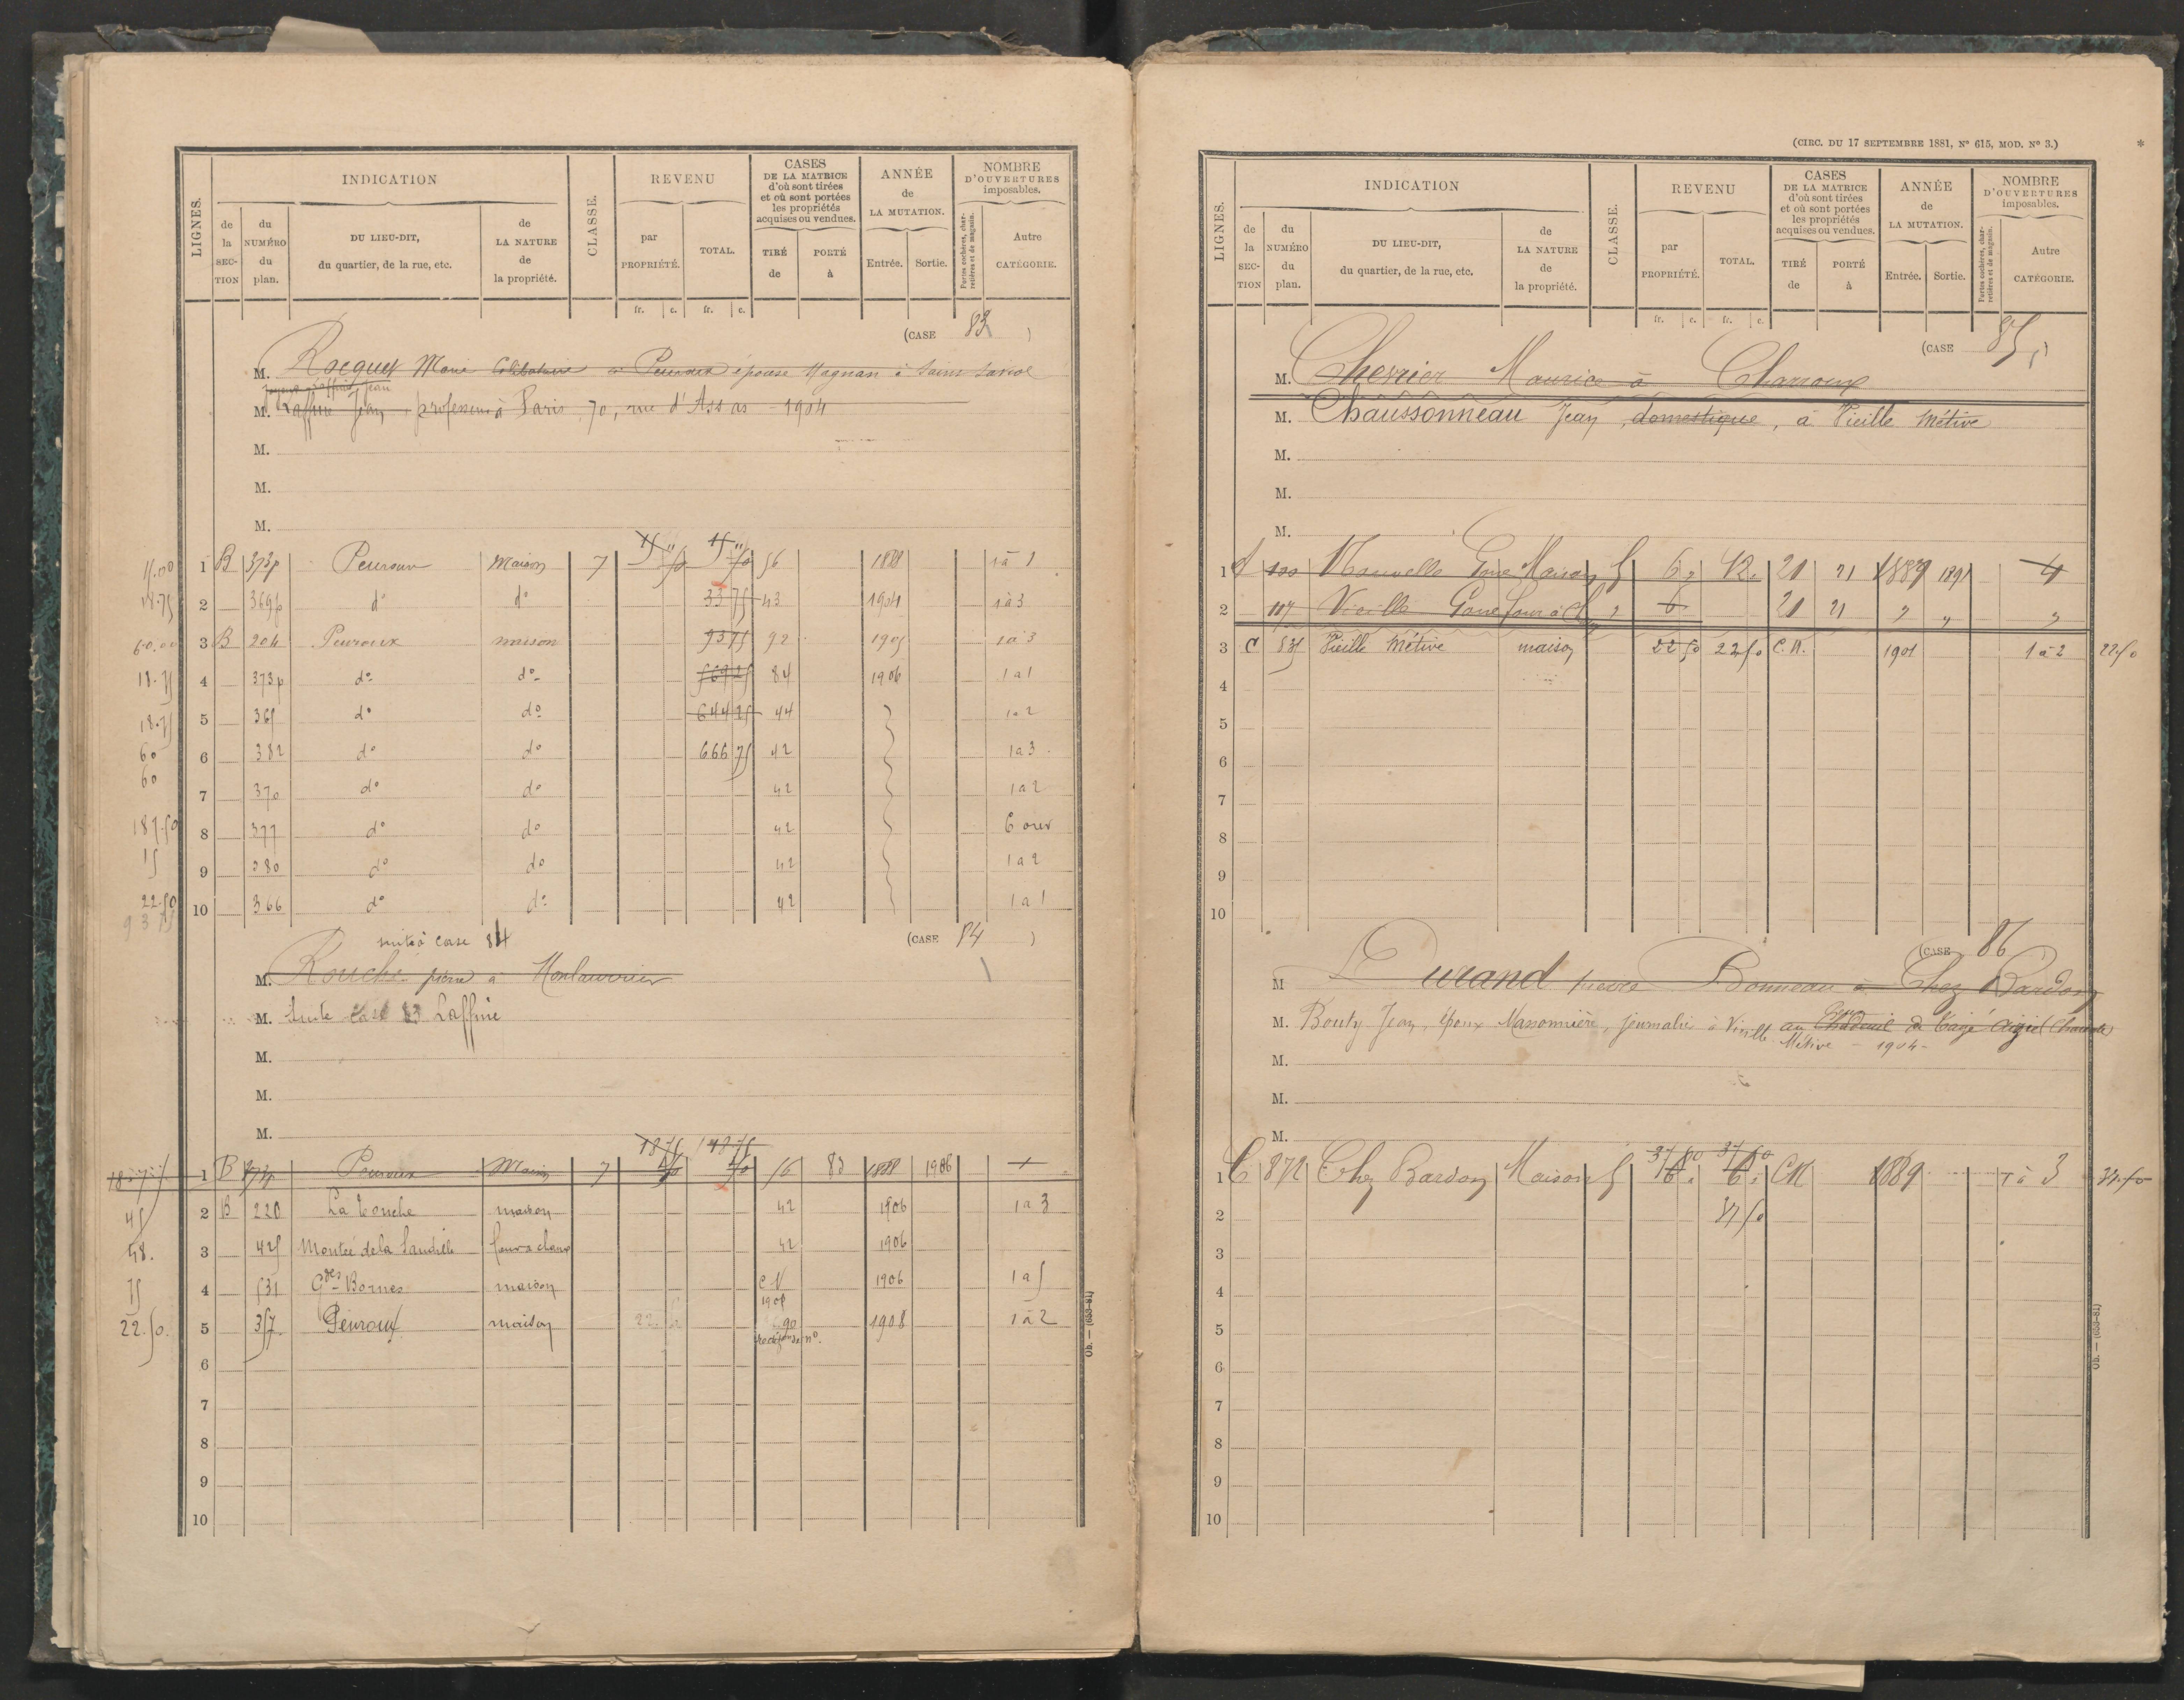 INDICATION
REVENU
CASES DE LA MATRICE d'où sont tirées et où sont portées les propriétés acquises ou vendues.
ANNÉE de LA MUTATION.
NOMBRE D'OUVERTURES imposables.
LIGNES.
de la SECTION
du NUMÉRO du plan.
DU LIEU-DIT, du quartier, de la rue, etc.
de LA NATURE de la propriété.
CLASSE.
par PROPRIÉTÉ.
TOTAL.
TIRÉ de
PORTÉ à
Entrée.
Sortie.
Portes cochères, charretières et de magasin.
Autre CATÉGORIE.
fr. c. fr. c.
(CASE 83 )
M. Rocquet Marie épouse Magnan à Saint Saviol
M. Laffine Jean professeur à Paris, 70, rue d'Assas - 1904
M.
M.
M.
1 B 373p Peuroux Maison 7 56 1888 1 à 1
18.75 2 369p do do 33 75 43 1904 1 à 3
60.00 3 B 204 Peuroux maison 93 75 92 1905 1 à 3
18.75 4 373p do do 84 1906 1 a 1
18.75 5 365 do do 644 25 44 1 a 2
60 6 382 do do 666 75 42 1 a 3
60 7 370 do do 42 1 a 2
187.50 8 377 do do 42 6 ouv
15 9 380 do do 42 1 a 2
22.50 10 366 do do 42 1 a 1
suite à case 84
(CASE 84 )
M. Rouché pierre à
M. Suite case 83 Laffine
M.
M.
M.
18 75 148 75
18.75 1 B 373p Peuroux Maison 7 56 83 1888 1906 1
45 2 B 220 La Touche maison 42 1906 1 a 3
48. 3 425 Montée de la four a chaux 42 1906
75 4 531 Gdes Bornes maison C N 1906 1 a 5
1908
22.50. 5 357 Peuroux maison 22 50 90 1908 1 à 2
6
7
8
9
10
Ob. — (653-81)
(CIRC. DU 17 SEPTEMBRE 1881, N° 615, MOD. N° 3.)
*
INDICATION
REVENU
CASES DE LA MATRICE d'où sont tirées et où sont portées les propriétés acquises ou vendues.
ANNÉE de LA MUTATION.
NOMBRE D'OUVERTURES imposables.
LIGNES.
de la SECTION
du NUMÉRO du plan.
DU LIEU-DIT, du quartier, de la rue, etc.
de LA NATURE de la propriété.
CLASSE.
par PROPRIÉTÉ.
TOTAL.
TIRÉ de
PORTÉ à
Entrée.
Sortie.
Portes cochères, charretières et de magasin.
Autre CATÉGORIE.
fr. c. fr. c.
(CASE 85 )
M. Chevrier Maurice à Charroux
M. Chaussonneau Jean, domestique, à Vieille Métive
M.
M.
M.
1 A 100 Nouvelle Maison 5 6 12 21 21 1889 1891 4
2 107 Vieille four à 6 21 21 " " "
3 C 535 Vieille Métive maison 22 50 22 50 C.N. 1901 1 à 2 22.50
4
5
6
7
8
9
10
(CASE 86
M Durand pierre Bonneau à Chez Bardon
M. Bouty Jean, époux Massonnière, journalier à Vieille Métive - 1904 -
M.
M.
M.
37 50 37 50
1 C 872 Chez Bardon Maison 5 6 6 CN 1889 1 à 3 37.50
2 37 50
3
4
5
6
7
8
9
10
Ob. — (653-81)